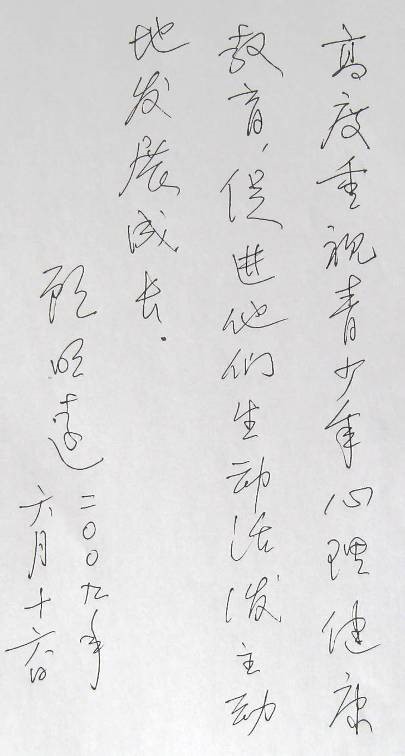 高度重视青少年心理健康
教育，促进他们生动活泼主动
地发展成长．
顾明远
二〇〇九年
六月十六日